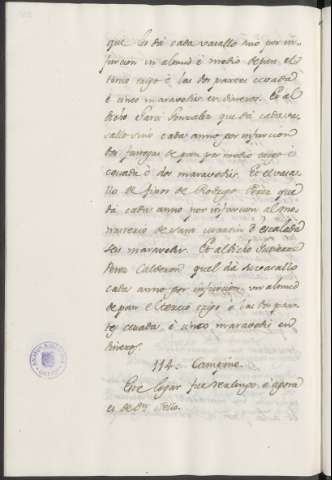 que les dá cada vasallo suio por in-
furcion un almud è medio de pan, el
tercio trigo è las dos partes cevada
è cinco maravedis en dineros. Et al
dicho Garci Gonzalez que dá cada va-
sallo suio cada anno por infurcion
dos fanegas de pan por medio trigo è
cevada è dos maravedis. Et el vasa-
llo de fijos de Rodrigo Perez que
dá cada anno por infurcion al mo-
nesterio de Sant Martin d'escalada
seis maravedis. Et al dicho
Perez Calderon quel dá su vasallo
cada anno por infurcion, un almud
de pan el tercio trigo è las dos par-
tes cevada, è cinco maravedis en
dineros.
114. Camesine.
Este logar fue realengo, è agora
es de Dn. Tello.